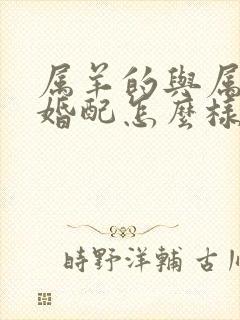 属羊的與属
婚配怎麼樣
時野洋輔 古川